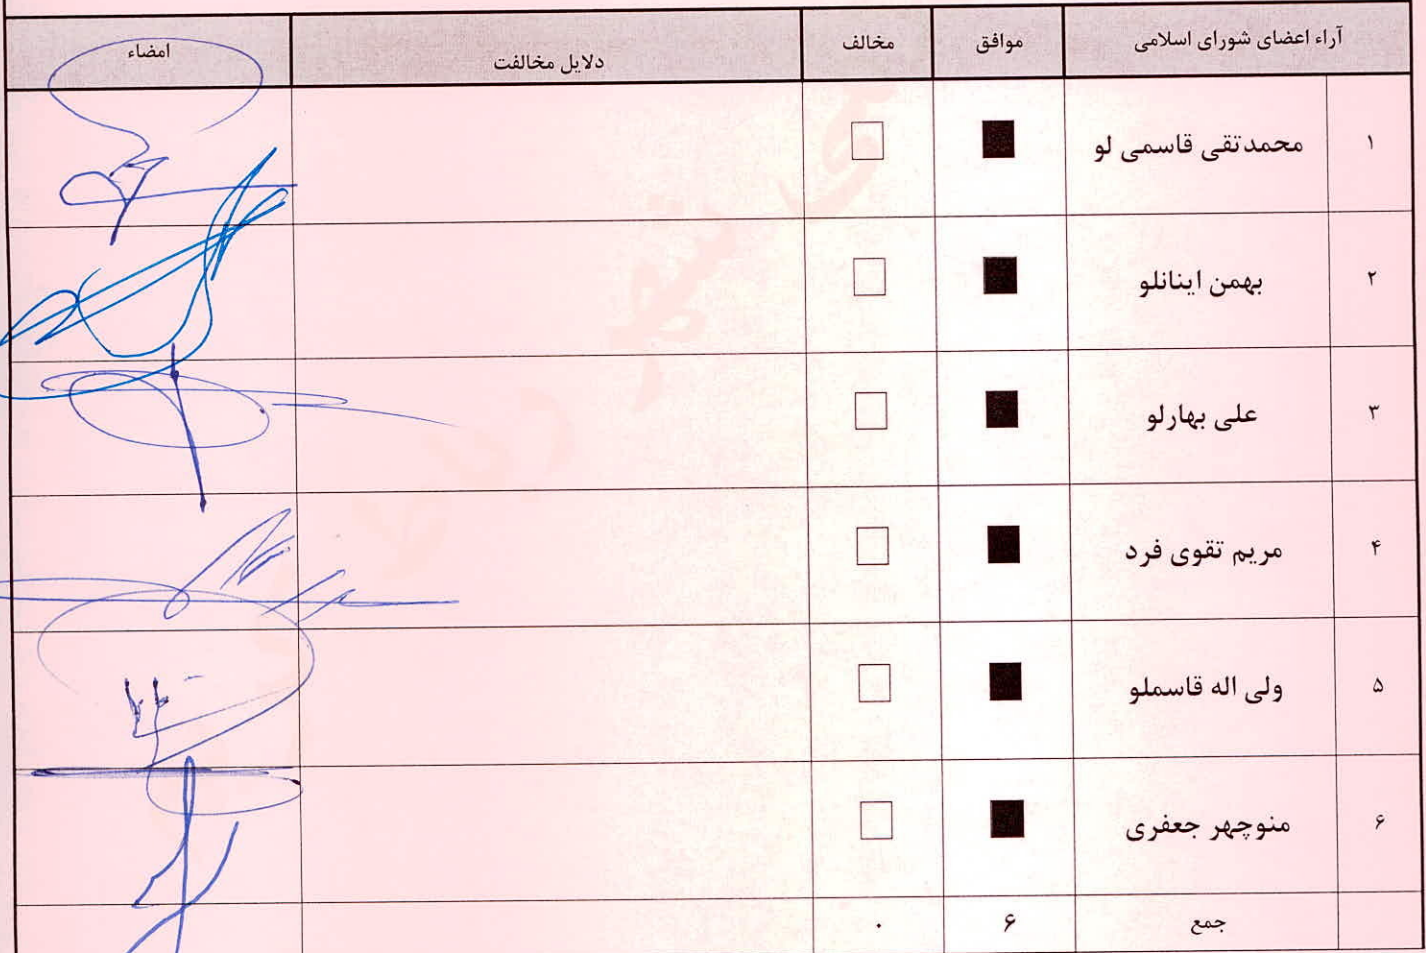 آراء اعضای شورای اسلامی موافق مخالف دلایل مخالفت امضاء
۱ محمدتقی قاسمی لو ■ □
۲ بهمن اینانلو ■ □
۳ علی بهارلو ■ □
۴ مریم تقوی فرد ■ □
۵ ولی اله قاسملو ■ □
۶ منوچهر جعفری ■ □
جمع ۶ ۰